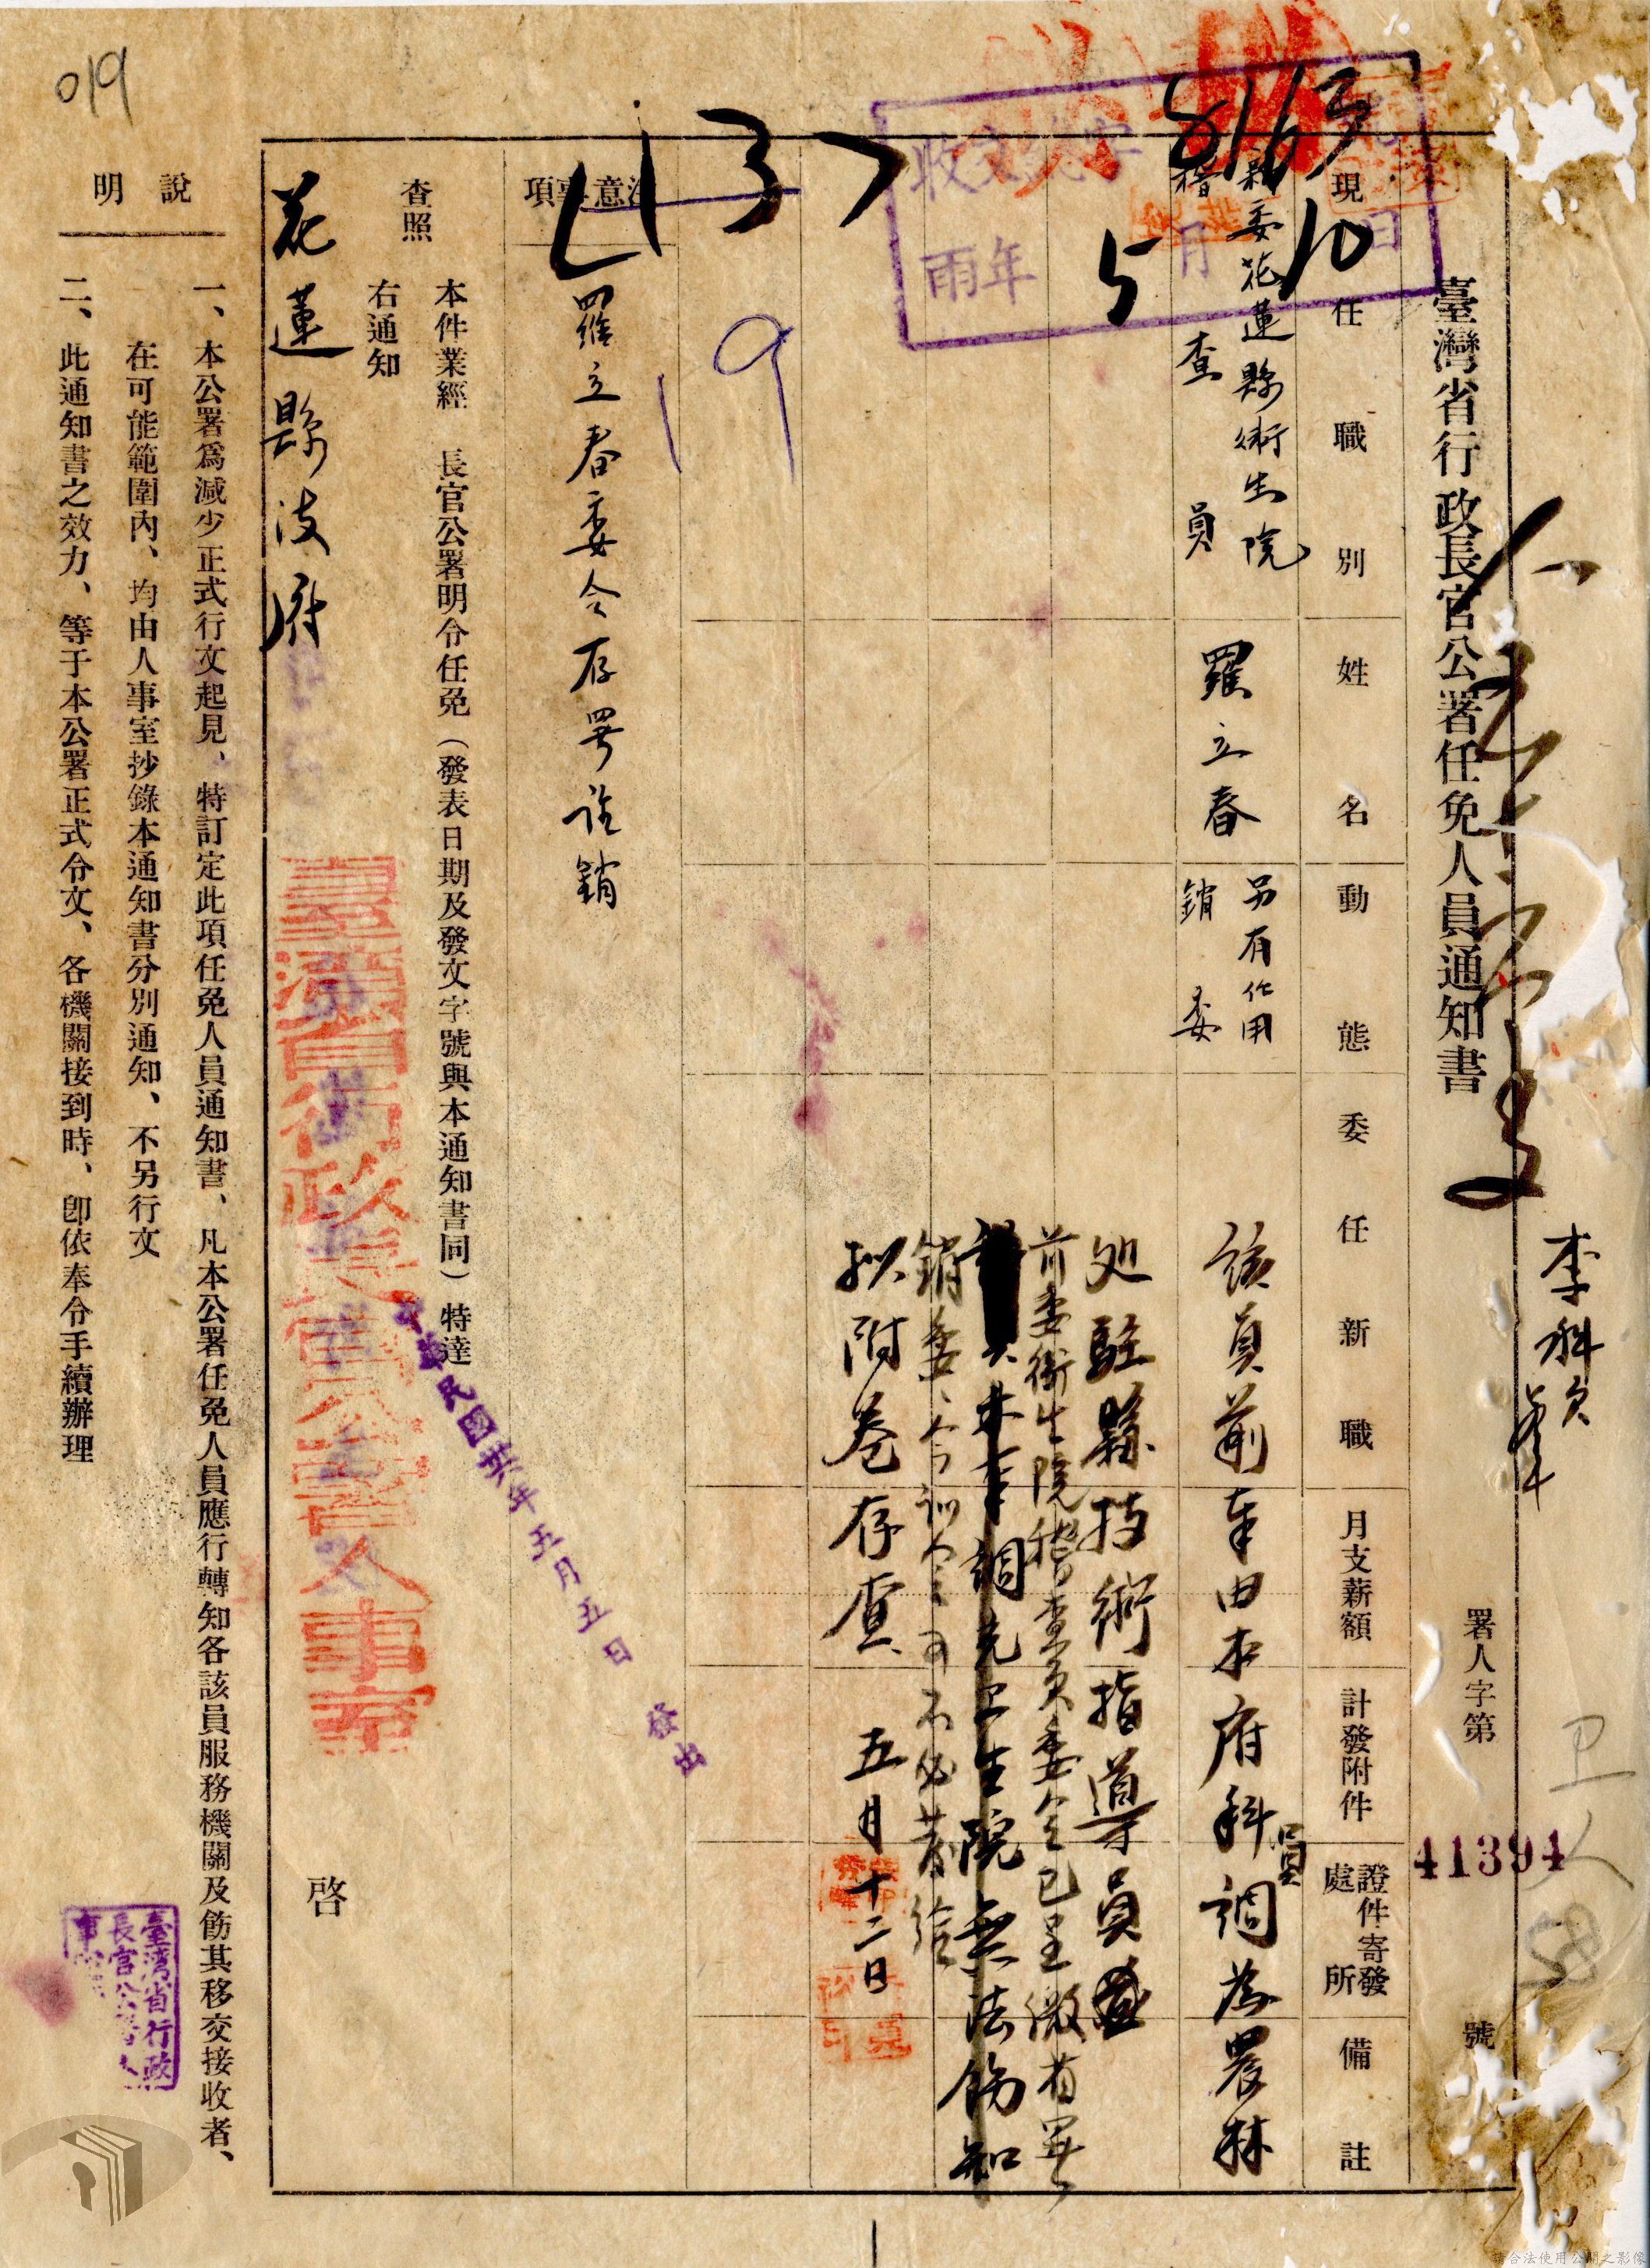 臺灣省行政長官公署任免人員通知書
署人字第
41394
號
李科員
卫人
58
8163
5
10
現任職別
姓名
動態
委任新職
月支薪額
計發附件
證件寄發
處所
備註
新委花蓮縣衛生院
稽查員
羅立春
另有任用
銷委
該員前奉由本府科員調為農林
处駐縣技術指導員
前委衛生院稽查員委令已呈繳省署
調充卫生院無法飭知
銷委之令訓令之可不必發給
拟附卷存查
五月十二日
收文 字
年 月 日
137
19
注意事項
羅立春委令存署註銷
本件業經 長官公署明令任免(發表日期及發文字號與本通知書同)特達
查照
右通知
花蓮縣政府
臺灣省行政長官公署人事室
啓
中華民國卅六年五月五日 發出
說明
一、本公署爲減少正式行文起見、特訂定此項任免人員通知書、凡本公署任免人員應行轉知各該員服務機關及飭其移交接收者、
在可能範圍內、均由人事室抄錄本通知書分別通知、不另行文
二、此通知書之效力、等于本公署正式令文、各機關接到時、卽依奉令手續辦理
臺灣省行政
長官公署人
事
019